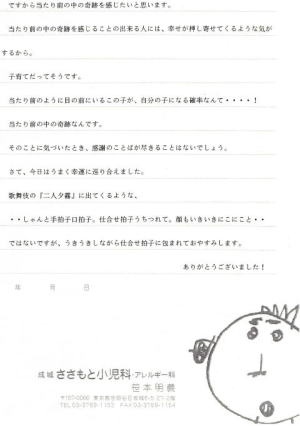 ですから当たり前の中の奇跡を感じたいと思います。
当たり前の中の奇跡を感じることの出来る人には、幸せが押し寄せてくるような気が
するから。
子育てだってそうです。
当たり前のように目の前にいるこの子が、自分の子になる確率なんて・・・・！
当たり前の中の奇跡なんです。
そのことに気づいたとき、感謝のことばが尽きることはないでしょう。
さて、今日はうまく幸運に巡り合えました。
歌舞伎の『二人夕霧』に出てくるような、
・・しゃんと手拍子口拍子。仕合せ拍子うちつれて。顔もいきいきにこにこと・・
ではないですが、うきうきしながら仕合せ拍子に包まれておやすみします。
ありがとうございました！
年 月 日
成城 ささもと小児科・アレルギー科
笹本明義
〒157-0066 東京都世田谷区成城